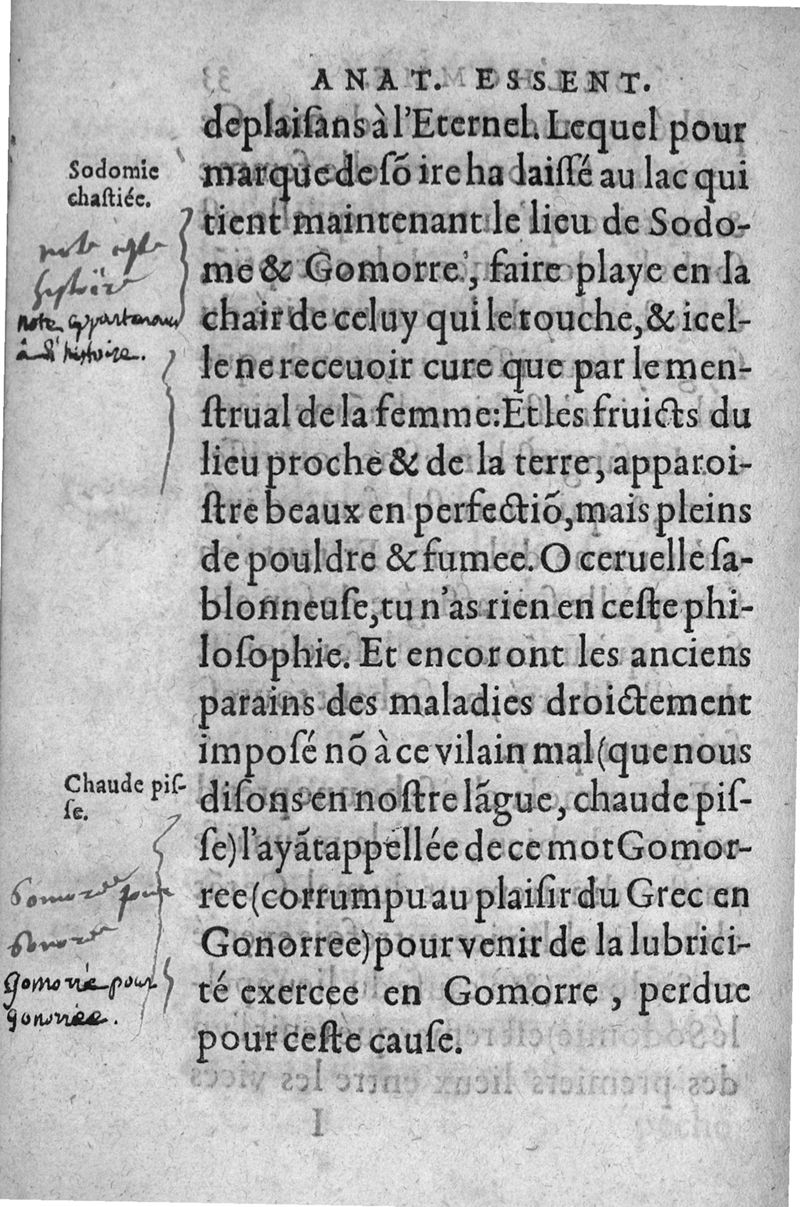 ANAT. ESSENT.
deplaiſans à l'Eternel. Lequel pour
Sodomie
chaſtiée.
marque de ſõ ire ha laiſſé au lac qui
tient maintenant le lieu de Sodo-
me & Gomorre, faire playe en la
note ceſte
hyſtoire
note appartenant
à l'histoire.
chair de celuy qui le touche, & icel-
le ne receuoir cure que par le men-
ſtrual de la femme: Et les fruicts du
lieu proche & de la terre, apparoi-
ſtre beaux en perfectiõ, mais pleins
de pouldre & fumee. O ceruelle ſa-
blonneuſe, tu n'as rien en ceſte phi-
loſophie. Et encor ont les anciens
parains des maladies droictement
impoſé nõ à ce vilain mal (que nous
Chaude piſ-
ſe.
diſons en noſtre lãgue, chaude piſ-
ſe) l'ayãt appellée de ce mot Gomor-
ree (corrumpu au plaiſir du Grec en
Gonorree) pour venir de la lubrici-
gomorée pour
gonorée
gomorrée pour
gonorrée.
té exercee en Gomorre, perdue
pour ceſte cauſe.
I